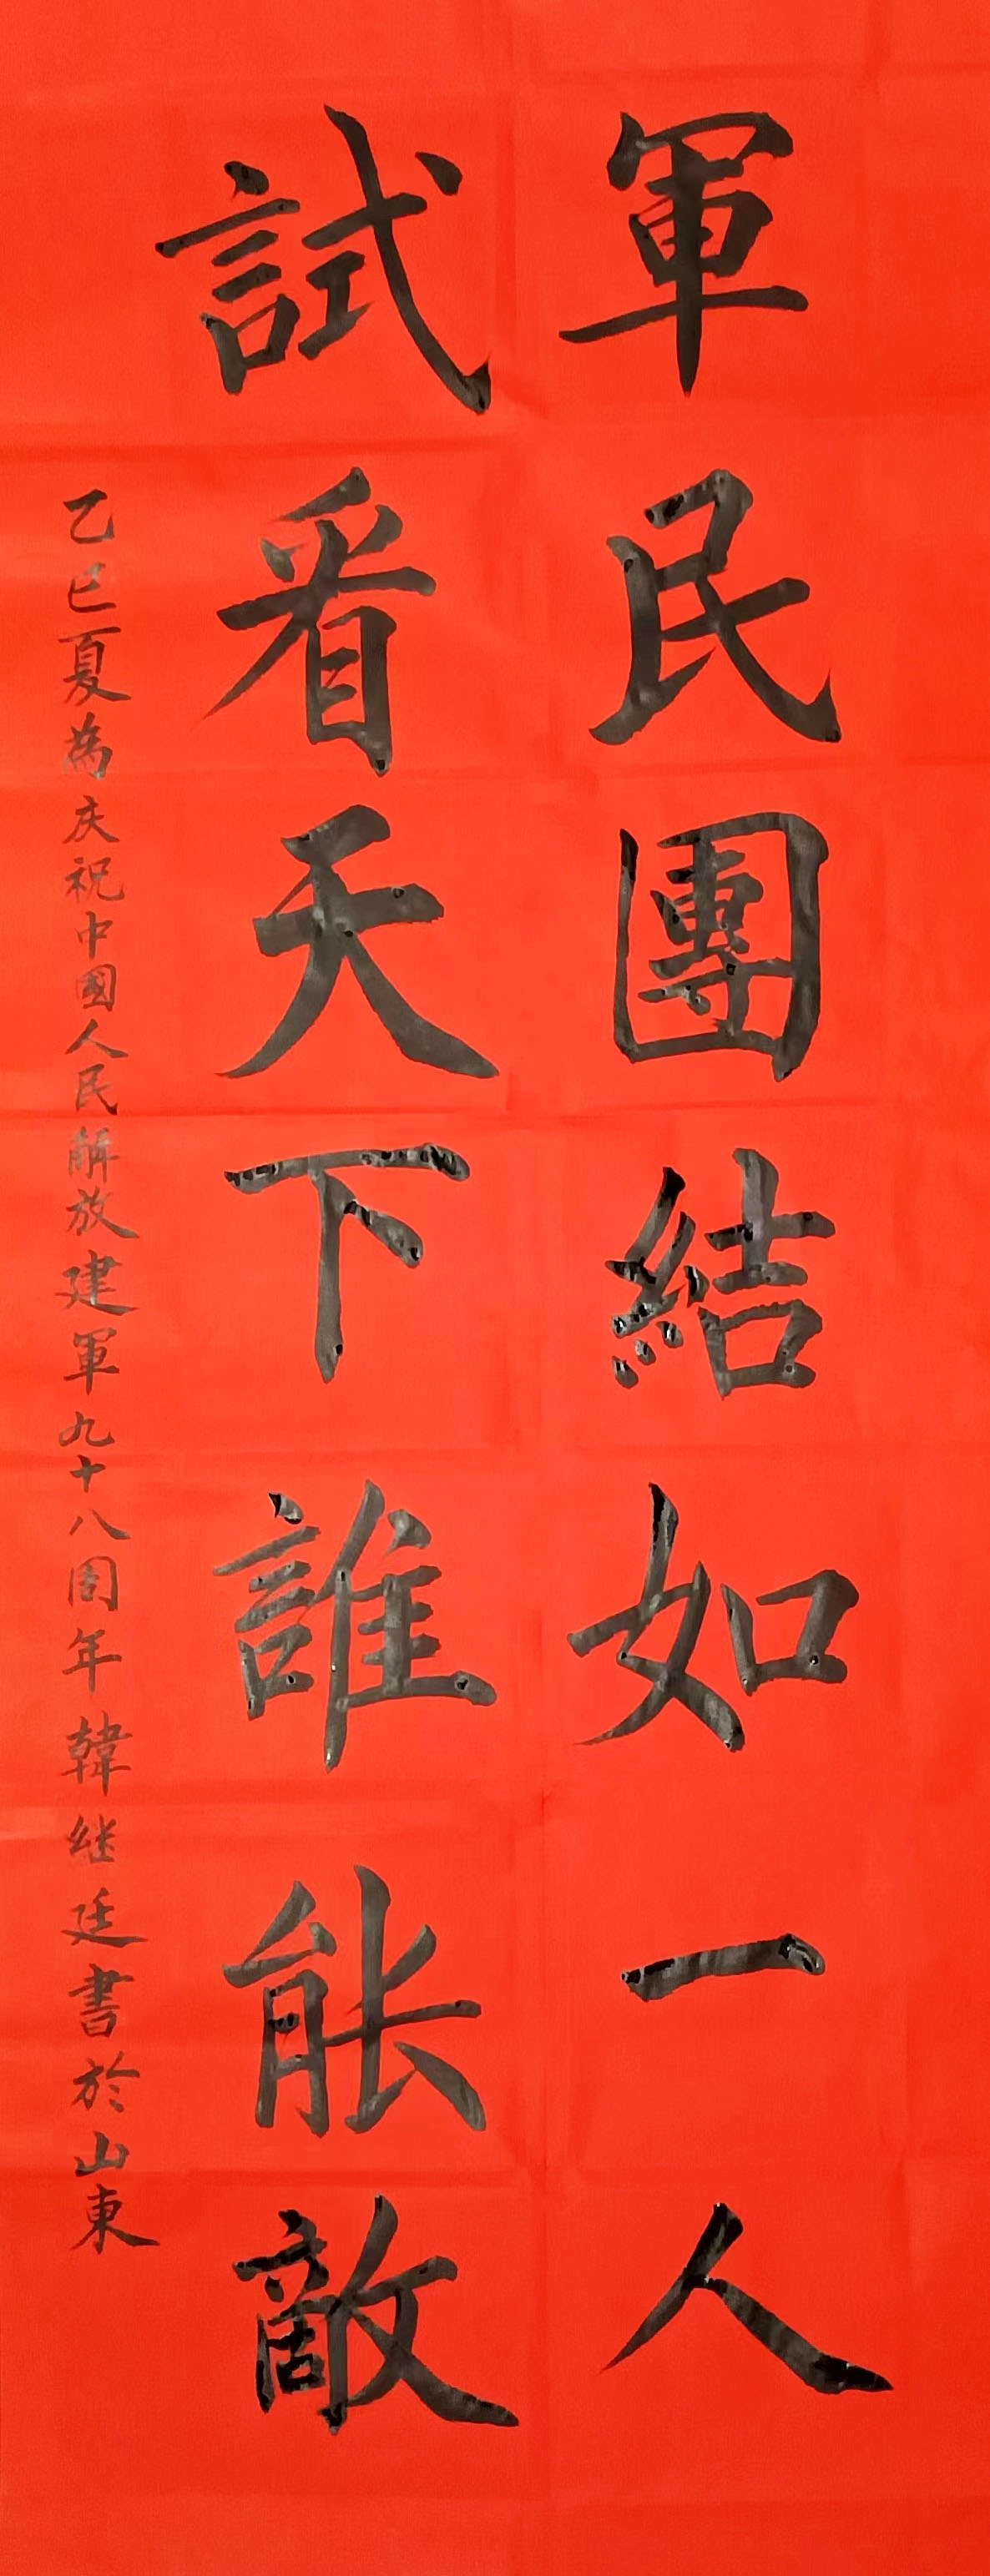 軍民團結如一人
試看天下誰能敵
乙巳夏為庆祝中國人民解放建軍九十八周年韓继廷書於山東